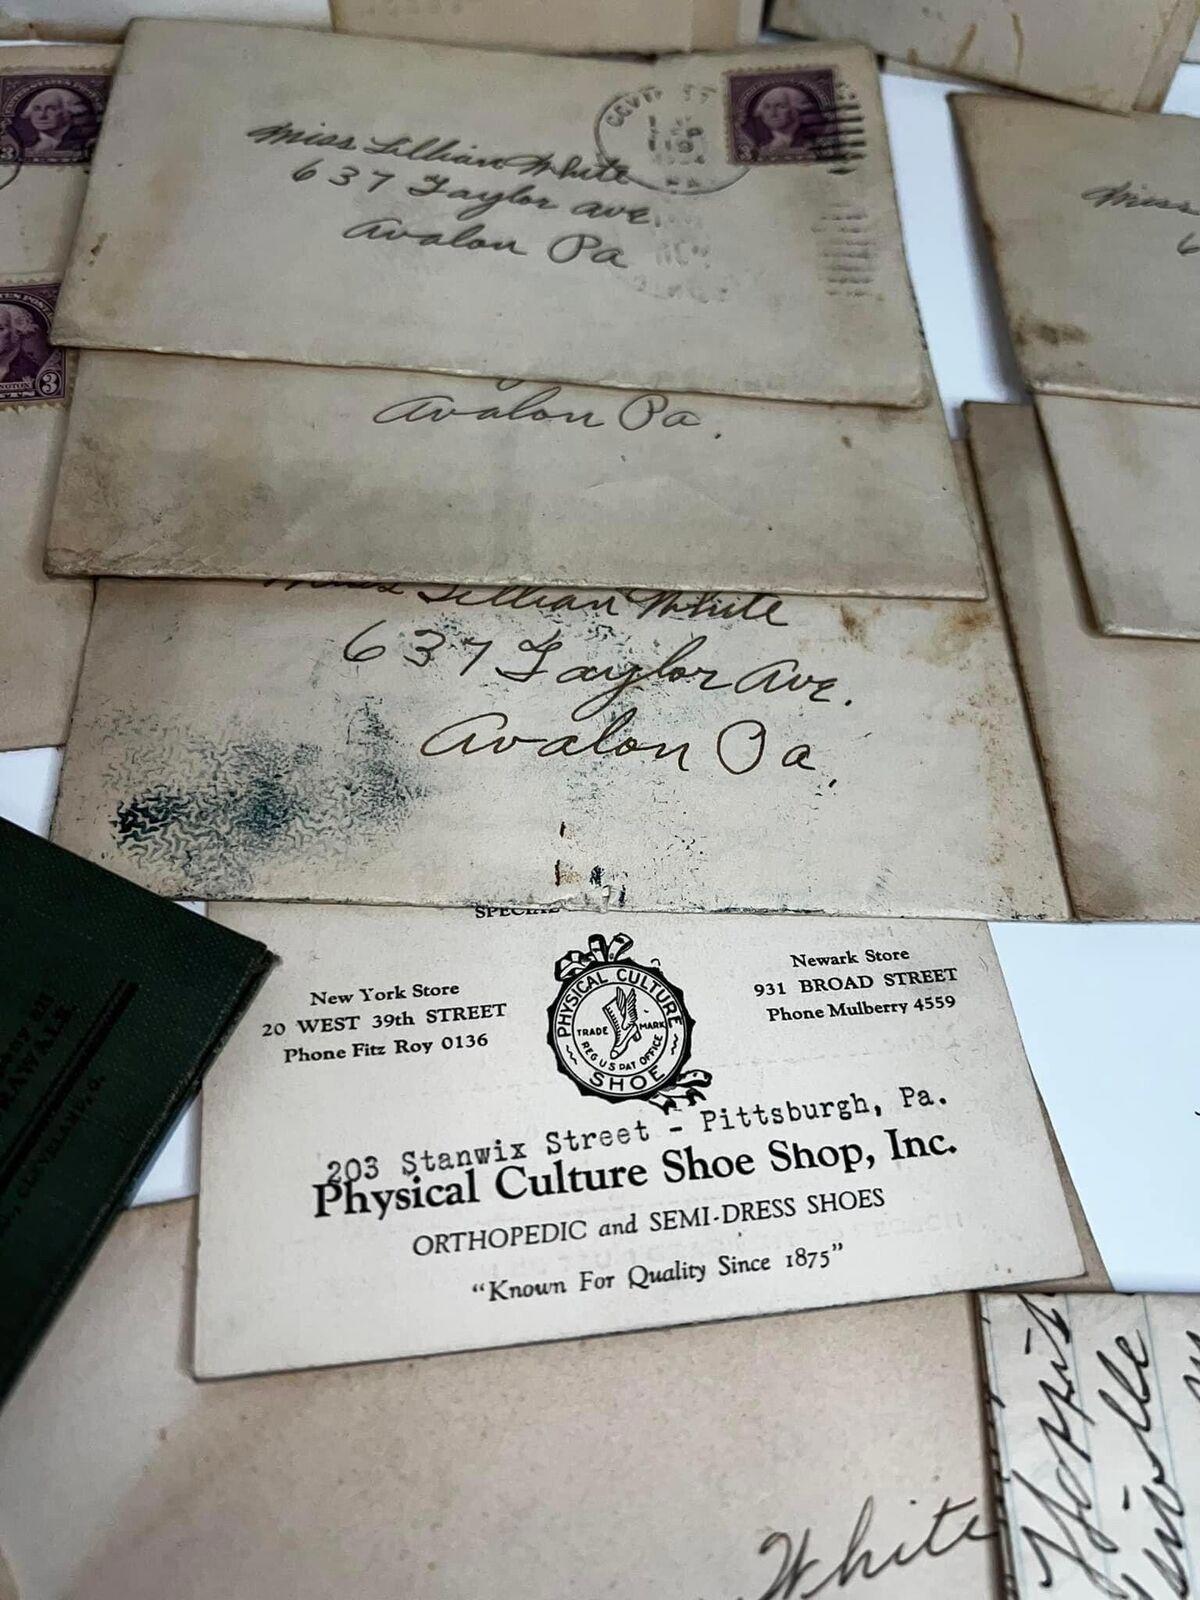 Miss Lillian White
637 Taylor Ave.
Avalon Pa
3
3
Avalon Pa.
Miss
6
Miss Lillian White
637 Taylor Ave.
Avalon Pa.
SPECIAL
New York Store
20 WEST 39th STREET
Phone Fitz Roy 0136
PHYSICAL CULTURE
TRADE MARK
REG US PAT OFFICE
SHOE
Newark Store
931 BROAD STREET
Phone Mulberry 4559
203 Stanwix Street - Pittsburgh, Pa.
Physical Culture Shoe Shop, Inc.
ORTHOPEDIC and SEMI-DRESS SHOES
"Known For Quality Since 1875"
White